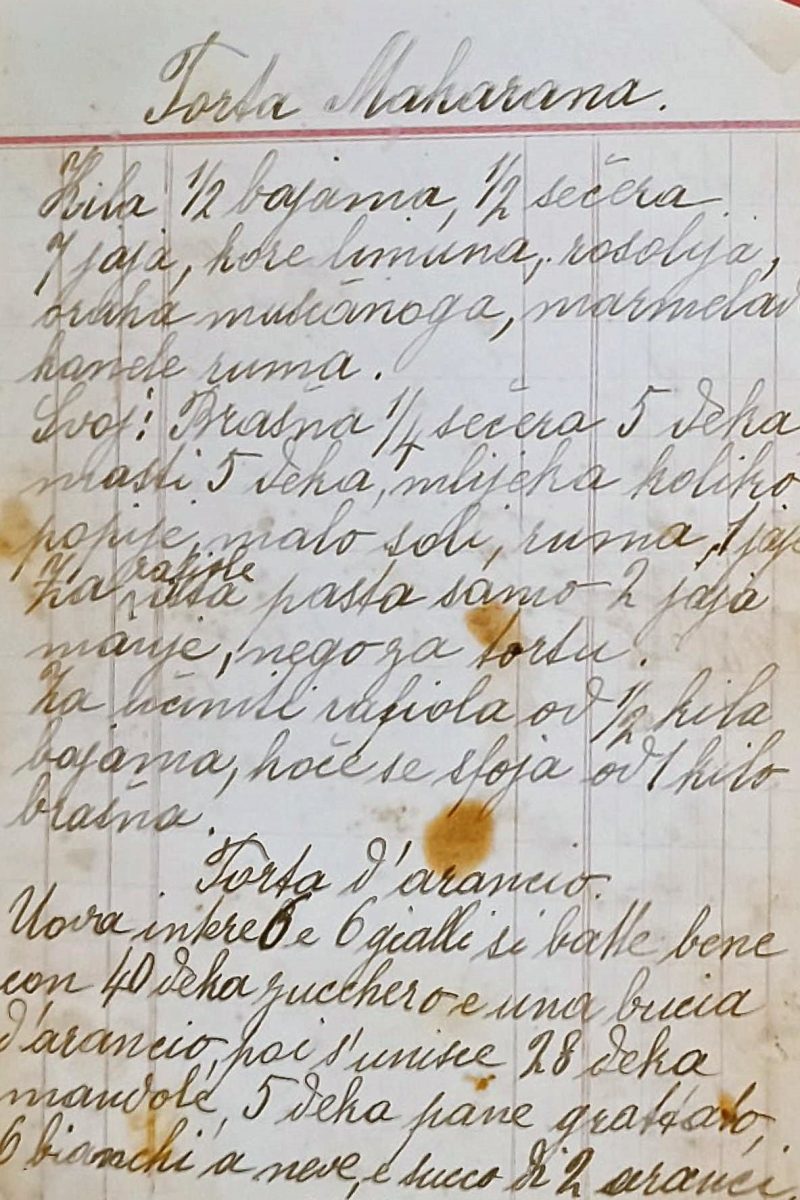 Torta Makarana.
Kila 1/2 bajama, 1/2 sečera
7 jaja, kore limuna, rosolija,
oraha mušćanoga, marmelad
kanele ruma.
Sfoj: Brašna 1/4 sečera 5 deka
masti 5 deka, mlijeka koliko
popije, malo soli, ruma, 1 jaje
Za rafiole pasta samo 2 jaja
manje, nego za tortu.
Za učiniti rafiola od 1/2 kila
bajama, hoće se sfoja od 1 kilo
brašna.
Torta d'arancio.
Uova intere 6 e 6 gialli si batte bene
con 40 deka zucchero e una bucia
d'arancio, poi s'unisce 28 deka
mandole, 5 deka pane grattato,
6 bianchi a neve, e succo di 2 aranci